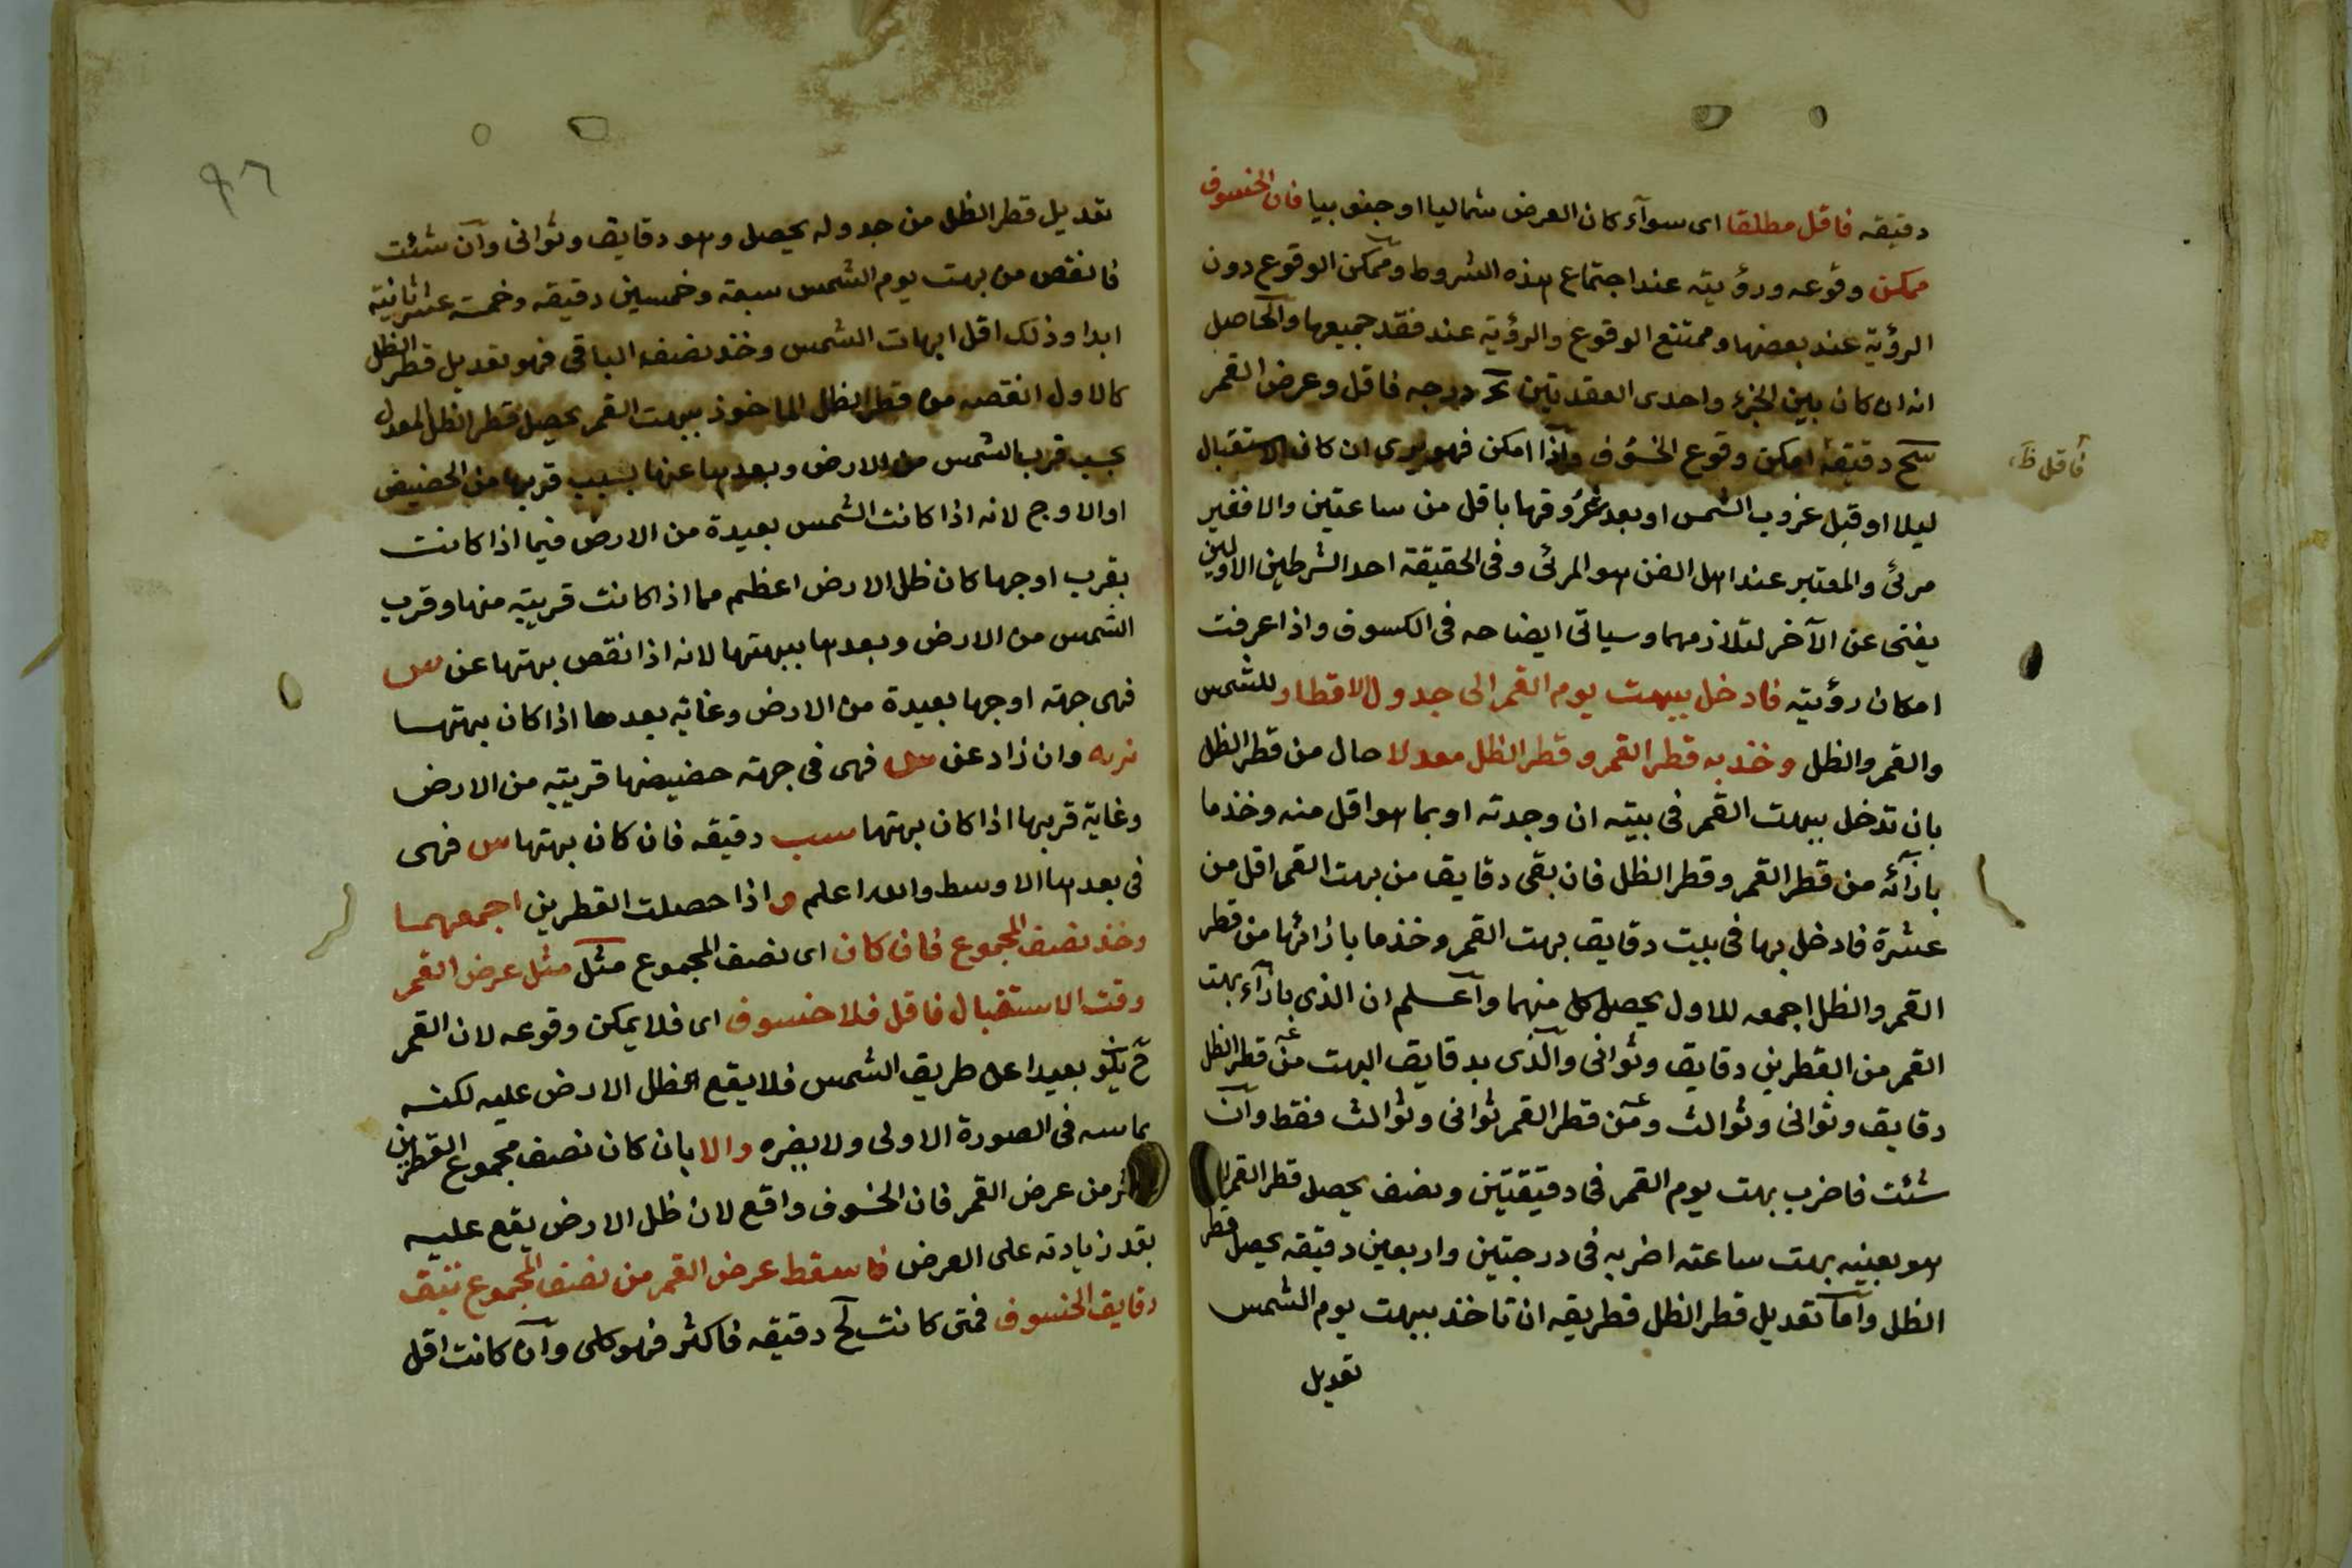 دقيقه فاقل مطلقا اى سوآء كان العرض شماليا او جنوبيا فان الخسوف
ممكن وقوعه ورؤيته عند اجتماع هذه الشروط وممكن الوقوع دون
الرؤية عند بعضها وممتنع الوقوع والرؤية عند فقد جميعها والحاصل
انه ان كان بين الجزء واحدى العقدتين درجه فاقل وعرض القمر
سح دقيقة امكن وقوع الخسوف واذا امكن فهو يرى ان كان الاستقبال
فاقل ظ
ليلا او قبل غروب الشمس او بعد شروقها باقل من ساعتين والا فغير
مرئى والمعتبر عند اهل الفن هو المرئى وفى الحقيقة احد الشرطين الاولين
يغنى عن الآخر لتلازمهما وسياتى ايضاحه فى الكسوف واذا عرفت
امكان رؤيته فادخل ببهت يوم القمر الى جدول الاقطار للشمس
والقمر والظل وخذ به قطر القمر وقطر الظل معدلا حال من قطر الظل
بان تدخل ببهت القمر فى بيته ان وجدته او بما هو اقل منه وخذ ما
بازآئه من قطر القمر وقطر الظل فان بقى دقايق من بهت القمر اقل من
عشرة فادخل بها فى بيت دقايق بهت القمر وخذ ما بازائها من قطر
القمر والظل اجمعه للاول يحصل كل منهما وآعلم ان الذى بازآء بهت
القمر من القطرين دقايق وثوانى والذى بدقايق البهت من قطر الظل
دقايق وثوانى وثوالث ومن قطر القمر ثوانى وثوالث فقط وآن
شئت فاضرب بهت يوم القمر فى دقيقتين ونصف يحصل قطر القمر
هو بعينه بهت ساعته اضربه فى درجتين واربعين دقيقه يحصل قطر
الظل وآما تعديل قطر الظل فطريقه ان تاخذ ببهت يوم الشمس
تعديل
٩٦
تعديل قطر الظل من جدوله يحصل وهو دقايق وثوانى وآن شئت
فانقص من بهت يوم الشمس سبعة وخمسين دقيقه وخمسة عشر ثانيته
ابدا وذلك اقل ابهات الشمس وخذ نصف الباقى فهو تعديل قطر الظل
كالاول انقصه من قطر الظل الماخوذ ببهت القمر يحصل قطر الظل المعدل
بحسب قرب الشمس من الارض وبعدها عنها بسبب قربها من الحضيض
او الاوج لانه اذا كانت الشمس بعيدة من الارض فيما اذا كانت
بقرب اوجها كان ظل الارض اعظم مما اذا كانت قريبة منها وقرب
الشمس من الارض وبعدها ببهتها لانه اذا نقص بهتها عن
فهى جهته اوجها بعيدة من الارض وغاية بعدها اذا كان بهتها
نزيه وان زاد عن فهى فى جهته حضيضها قريبة من الارض
وغاية قربها اذا كان بهتها دقيقه فان كان بهتها فهى
فى بعدها الاوسط والله اعلم واذا حصلت القطرين اجمعهما
وخذ نصف المجموع فان كان اى نصف المجموع مثل مثل عرض القمر
وقت الاستقبال فاقل فلا خسوف اى فلا يمكن وقوعه لان القمر
ح يكون بعيدا عن طريق الشمس فلا يقع ظل الارض عليه لكنه
يماسه فى الصورة الاولى ولا يضره والا بان كان نصف مجموع القطرين
من عرض القمر فان الخسوف واقع لان ظل الارض يقع عليه
بقدر زيادته على العرض فاسقط عرض القمر من نصف المجموع تبق
دقايق الخسوف فمتى كانت دقيقه فاكثر فهو كلى وآن كانت اقل